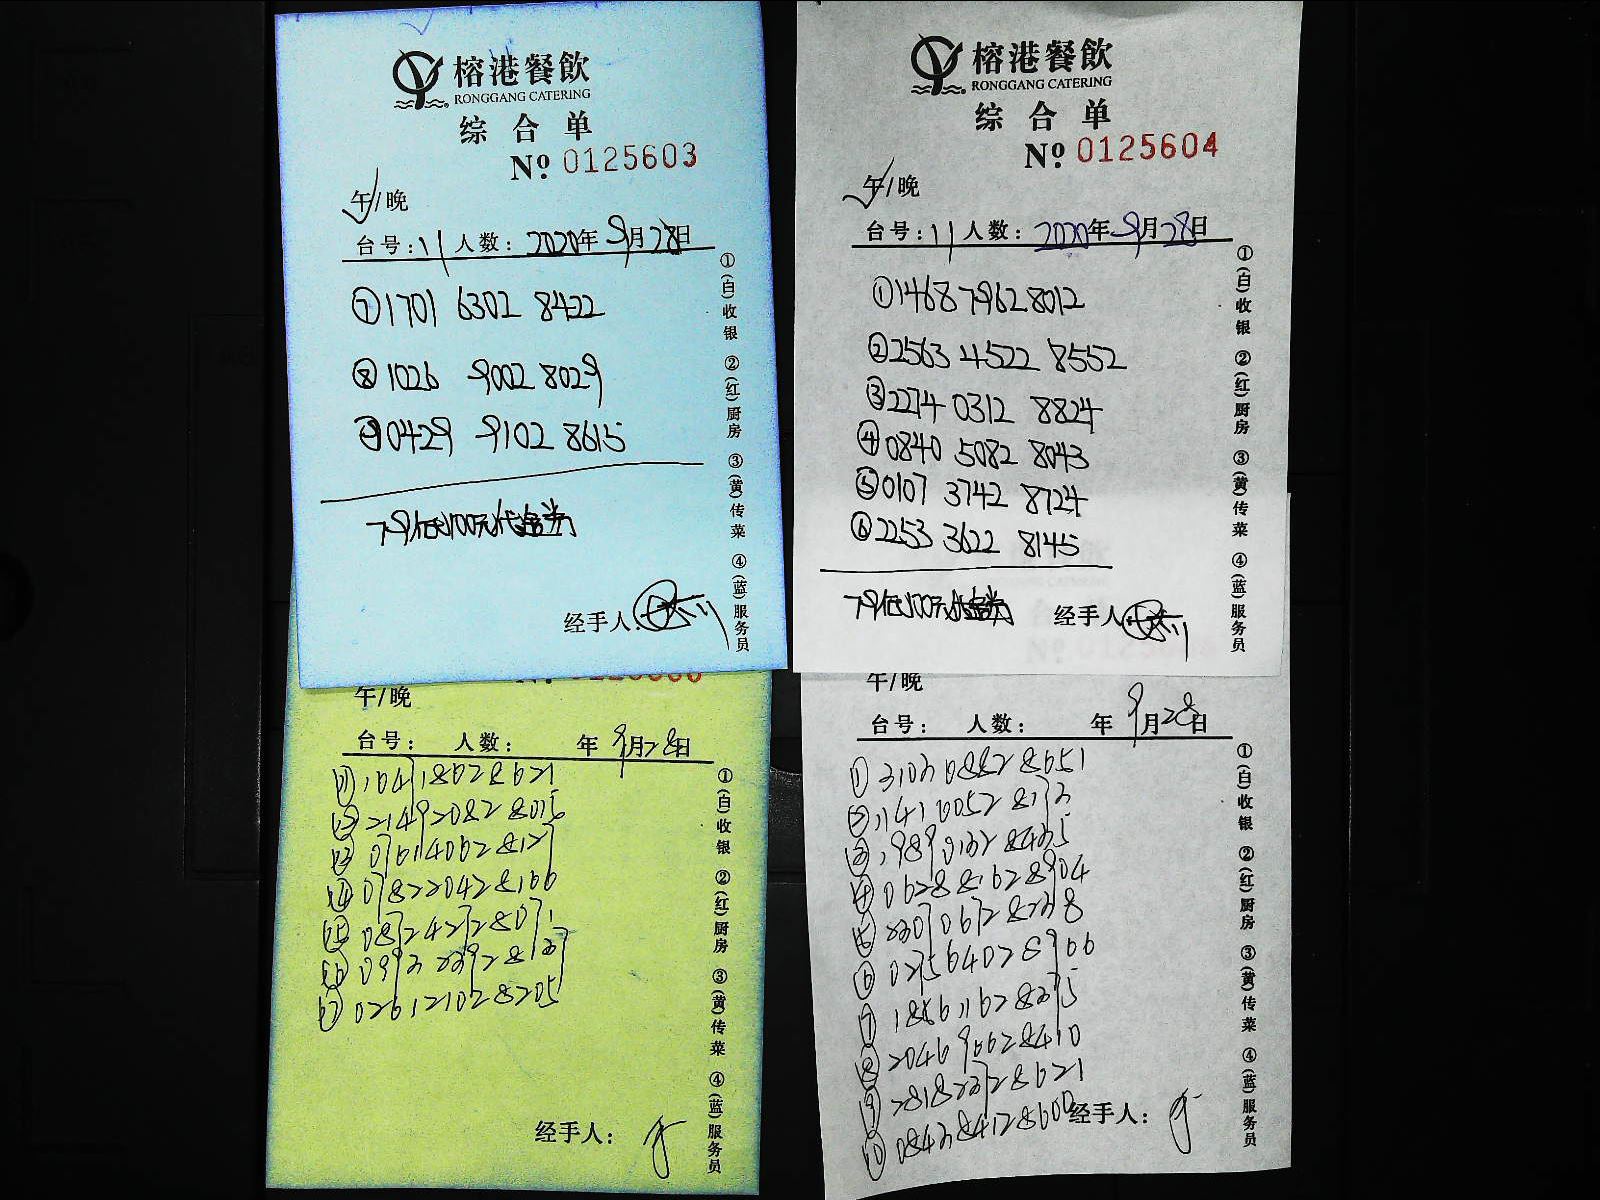 榕港餐飲
RONGGANG CATERING
综合单
№ 0125603
午/晚
台号: 11 人数: 2020年9月28日
⑦1701 6302 8422
⑧1026 9002 8029
⑨0429 9102 8615
79抵100元代金券
经手人:
①(白)收银 ②(红)厨房 ③(黄)传菜 ④(蓝)服务员
榕港餐飲
RONGGANG CATERING
综合单
№ 0125604
午/晚
台号: 11 人数: 2020年9月28日
①1468 7962 8012
②2563 4522 8552
③2274 0312 8824
④0840 5082 8043
⑤0107 3742 8724
⑥2253 3622 8145
79抵100元代金券
经手人
①(白)收银 ②(红)厨房 ③(黄)传菜 ④(蓝)服务员
午/晚
台号: 人数: 年9月28日
⑪104718028621
⑫214920828015
⑬076140628127
⑭078220428166
⑮087242728071
⑯099333928137
⑰026121028205
经手人:
①(白)收银 ②(红)厨房 ③(黄)传菜 ④(蓝)服务员
午/晚
台号: 人数: 年9月28日
①310308828651
②114100528173
③198901328435
④062881628904
⑤330706728238
⑥027564028966
⑦186611628375
⑧204696628410
⑨281823728621
⑩084384128600
经手人:
①(白)收银 ②(红)厨房 ③(黄)传菜 ④(蓝)服务员